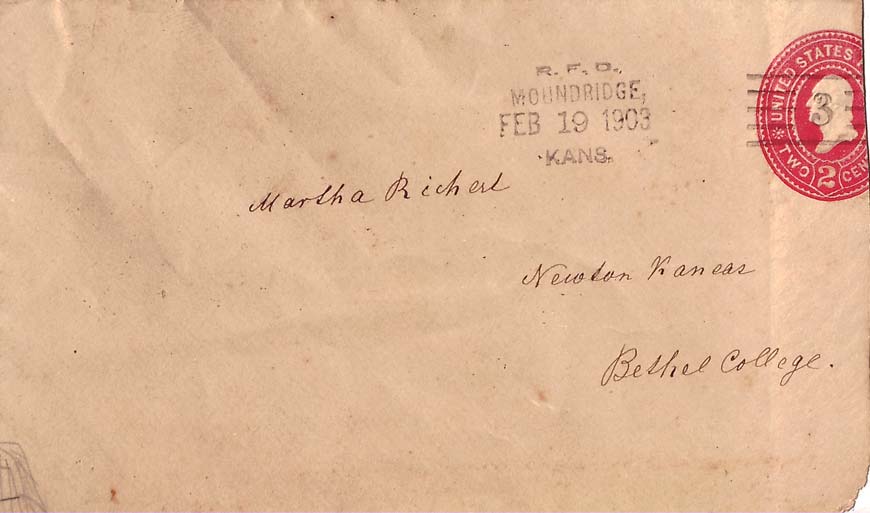 R. F. D.,
MOUNDRIDGE,
FEB 19 1903
KANS.
3
UNITED STATES
TWO 2 CEN
Martha Richert
Newton Kansas
Bethel College.